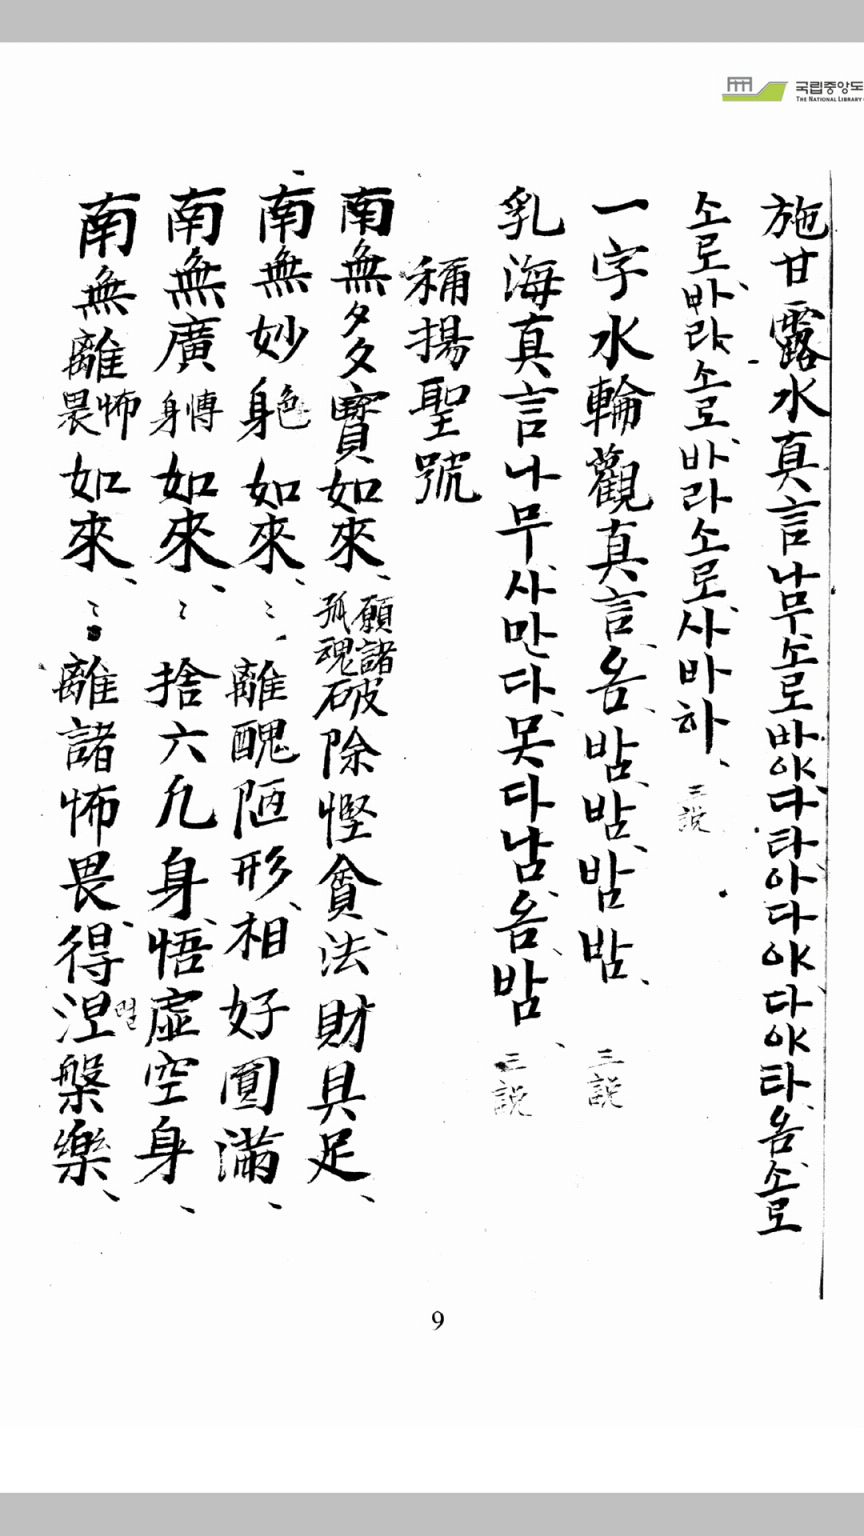 국립중앙도
THE NATIONAL LIBRARY
施甘露水真言나무소로바야다타아다야다야타옴소로
소로바라소로바라소로사바하 三說
一字水輪觀真言옴밤밤밤밤 三說
乳海真言나무사만다못다남옴밤 三說
稱揚聖號
南無多寶如來 願諸孤魂破除慳貪法財具足
南無妙色身如來 〻 離醜陋形相好圓滿
南無廣博身如來 〻 捨六凡身悟虛空身
南無離怖畏如來 〻 離諸怖畏得涅槃樂
녈
9